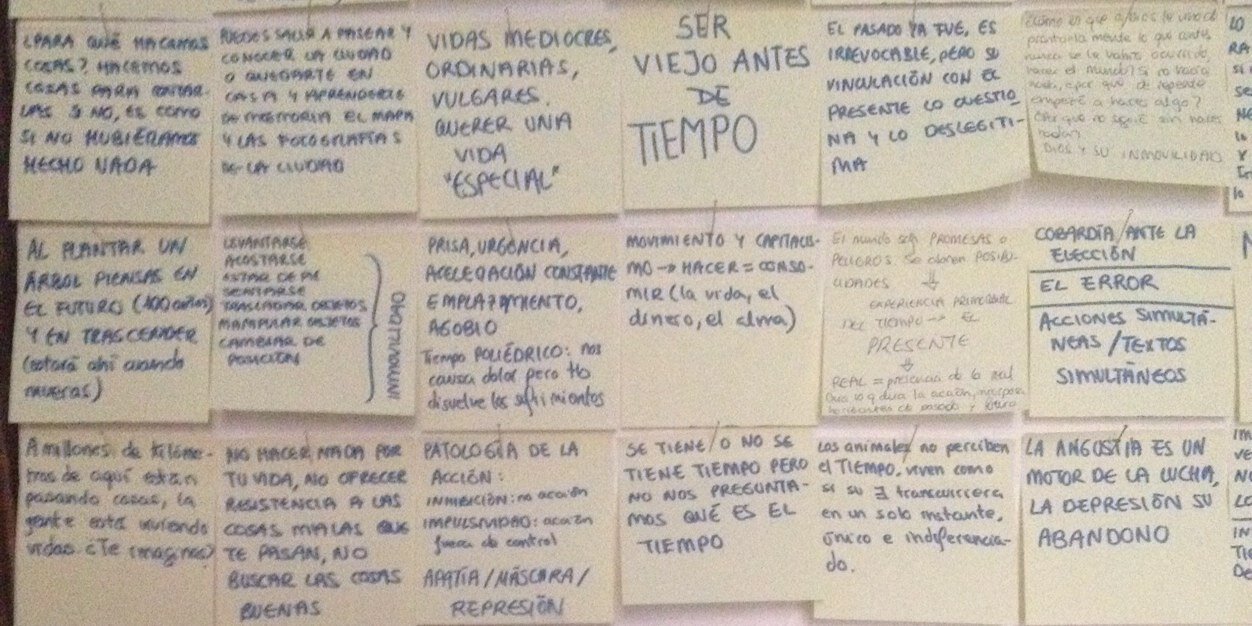 ¿PARA QUÉ HACEMOS
COSAS? HACEMOS
COSAS PARA CONTAR-
LAS SI NO, ES COMO
SI NO HUBIÉRAMOS
HECHO NADA
PUEDES SALIR A PASEAR Y
CONOCER LA CIUDAD
O QUEDARTE EN
CASA Y APRENDERTE
DE MEMORIA EL MAPA
Y LAS FOTOGRAFÍAS
DE LA CIUDAD
VIDAS MEDIOCRES,
ORDINARIAS,
VULGARES.
QUERER UNA
VIDA
"ESPECIAL"
SER
VIEJO ANTES
DE
TIEMPO
EL PASADO YA FUE, ES
IRREVOCABLE, PERO SU
VINCULACIÓN CON EL
PRESENTE LO CUESTIO
NA Y LO DESLEGITI-
MA
¿Cómo es que a Dios le vino de
pronto a la mente lo que antes
nunca se le había ocurrido,
hacer el mundo? Si no hacía
nada, ¿por qué de repente
empezó a hacer algo?
¿Por qué no siguió sin hacer
nada?
DIOS Y SU INMOVILIDAD
AL PLANTAR UN
ÁRBOL PIENSAS EN
EL FUTURO (100 años)
Y EN TRASCENDER
(estará ahí cuando
mueras)
LEVANTARSE
ACOSTARSE
ESTAR DE PIE
SENTARSE
TRASLADAR OBJETOS
MANIPULAR OBJETOS
CAMBIAR DE
POSICIÓN
INMOVILIDAD
PRISA, URGENCIA,
ACELERACIÓN CONSTANTE
EMPLAZAMIENTO,
AGOBIO
Tiempo POLIÉDRICO: nos
causa dolor pero tb
disuelve los sufrimientos
MOVIMIENTO Y CAPITALIS-
MO → HACER = CONSU-
MIR (la vida, el
dinero, el alma)
El mundo son PROMESAS o
PELIGROS. Se abren POSIBI-
LIDADES ↓
EXPERIENCIA
DEL TIEMPO → EL
PRESENTE
↓
REAL = presencia de lo real
Dura lo q dura la acción, incorpora
horizontes de pasado y futuro
COBARDÍA ANTE LA
ELECCIÓN
EL ERROR
ACCIONES SIMULTÁ-
NEAS / TEXTOS
SIMULTÁNEOS
A millones de kilóme-
tros de aquí están
pasando cosas, la
gente está viviendo
vidas ¿Te imaginas?
NO HACER NADA POR
TU VIDA, NO OFRECER
RESISTENCIA A LAS
COSAS MALAS QUE
TE PASAN, NO
BUSCAR LAS COSAS
BUENAS
PATOLOGÍA DE LA
ACCIÓN:
INHIBICIÓN: no acción
IMPULSIVIDAD: acción
fuera de control
APATÍA / MÁSCARA /
REPRESIÓN
SE TIENE O NO SE
TIENE TIEMPO PERO
NO NOS PREGUNTA-
MOS QUÉ ES EL
TIEMPO
Los animales no perciben
el TIEMPO. viven como
si su ∃ transcurriera
en un solo instante,
único e indiferencia-
do.
LA ANGUSTIA ES UN
MOTOR DE LA LUCHA,
LA DEPRESIÓN SU
ABANDONO